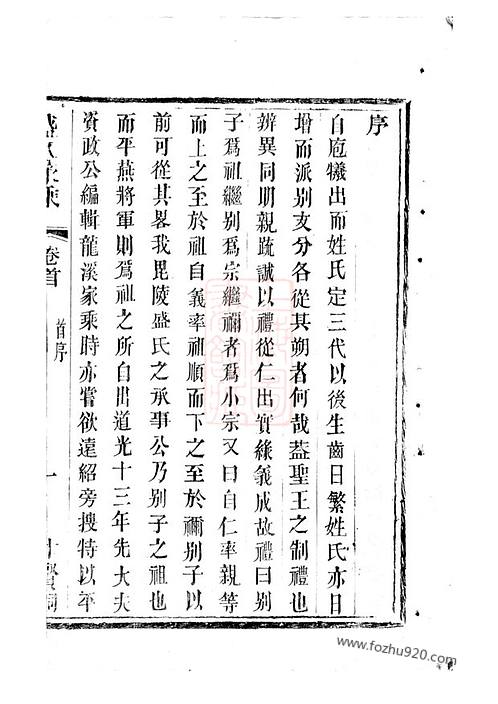 序
自庖犧出而姓氏定三代以後生齒日繁姓氏亦日
增而派別支分各從其朔者何哉葢聖王之制禮也
辨異同明親疏誠以禮從仁出實緣義成故禮曰別
子爲祖繼別爲宗繼禰者爲小宗又曰自仁率親等
而上之至於祖自義率祖順而下之至於禰別子以
前可從其畧我毘陵盛氏之承事公乃別子之祖也
而平燕將軍則爲祖之所自出道光十三年先大夫
資政公編輯龍溪家乘時亦嘗欲遠紹旁搜特以年
卷首
首序
一
www.fozhu920.com